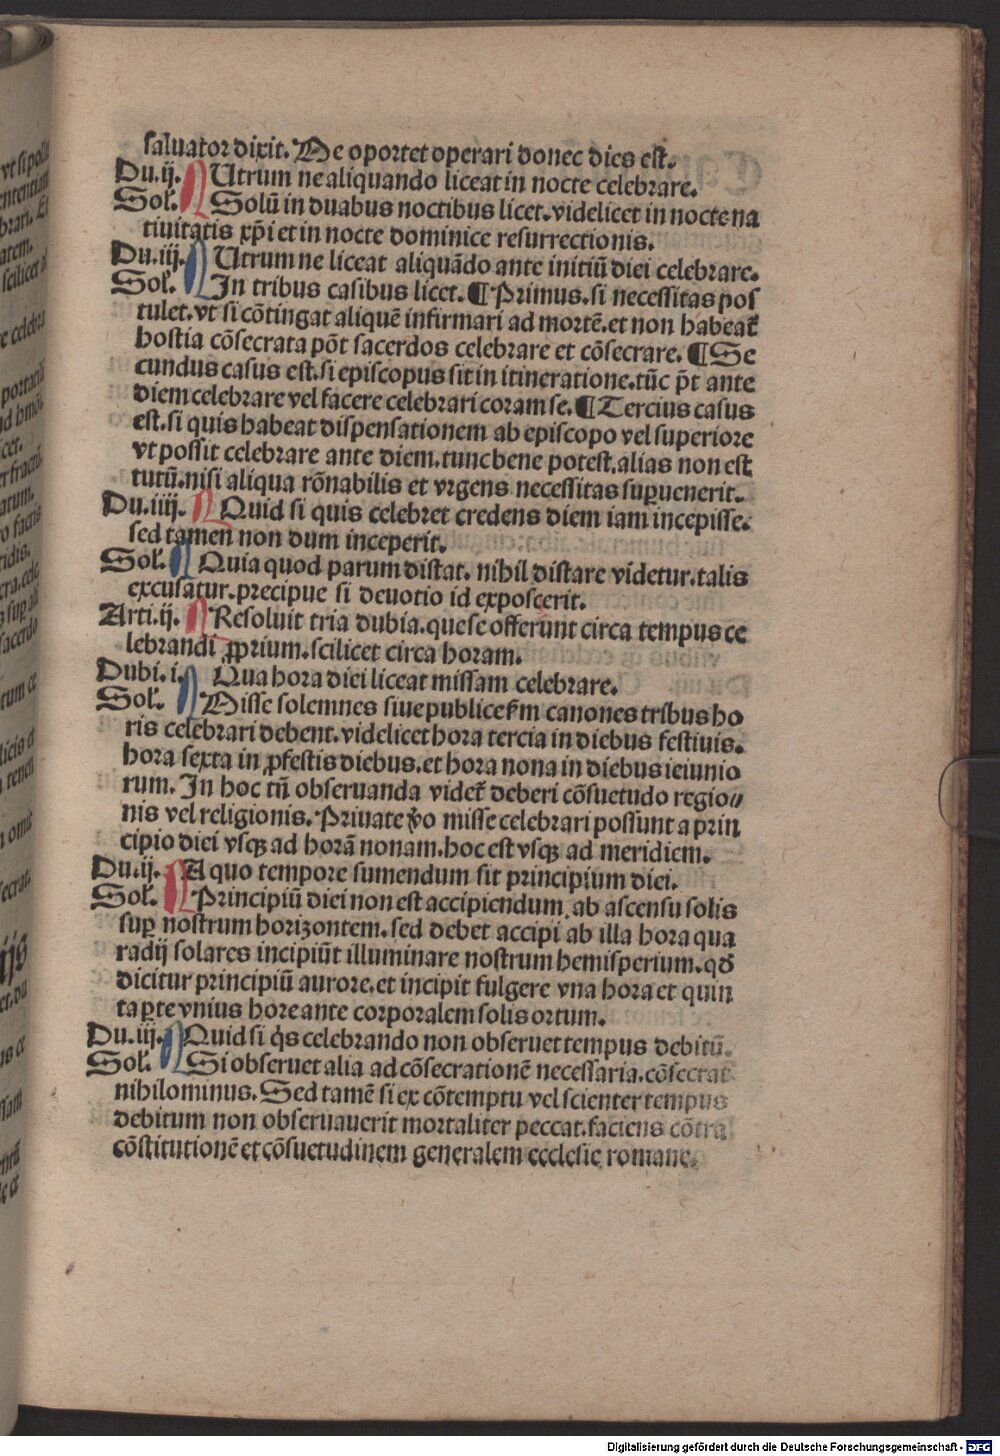 saluator dixit. Me oportet operari donec dies est.
Du. ij. Utrum ne aliquando liceat in nocte celebrare.
Sol'. Solū in duabus noctibus licet. videlicet in nocte na
tiuitatis xp̄i et in nocte dominice resurrectionis.
Du. iij. Utrum ne liceat aliquādo ante initiū diei celebrare.
Sol'. In tribus casibus licet. ¶ Primus. si necessitas pos
tulet. vt si cōtingat aliquē infirmari ad mortē. et non habeat̄
hostia cōsecrata pōt sacerdos celebrare et cōsecrare. ¶ Se
cundus casus est. si episcopus sit in itineratione. tūc p̄t ante
diem celebrare vel facere celebrari coram se. ¶ Tercius casus
est. si quis habeat dispensationem ab episcopo vel superiore
vt possit celebrare ante diem. tunc bene potest. alias non est
tutū. nisi aliqua rōnabilis et vrgens necessitas suꝑuenerit.
Du. iiij. Quid si quis celebret credens diem iam incepisse.
sed tamen non dum inceperit.
Sol'. Quia quod parum distat. nihil distare videtur. talis
excusatur. precipue si deuotio id exposcerit.
Arti. ij. Resoluit tria dubia. que se offerunt circa tempus ce
lebrandi ꝓprium. scilicet circa horam.
Dubi. i. Qua hora diei liceat missam celebrare.
Sol'. Misse solemnes siue publice fm canones tribus ho
ris celebrari debent. videlicet hora tercia in diebus festiuis.
hora sexta in ꝓfestis diebus. et hora nona in diebus ieiunio
rum. In hoc tn̄ obseruanda videt̄ deberi cōsuetudo regio⸗
nis vel religionis. Priuate v̄o misse celebrari possunt a prin
cipio diei vsqꝫ ad horā nonam. hoc est vsqꝫ ad meridiem.
Du. ij. A quo tempore sumendum sit principium diei.
Sol'. Principiū diei non est accipiendum ab ascensu solis
suꝑ nostrum horizontem. sed debet accipi ab illa hora qua
radij solares incipiūt illuminare nostrum hemisperium. qd̄
dicitur principiū aurore. et incipit fulgere vna hora et quin
ta ꝑte vnius hore ante corporalem solis ortum.
Du. iij. Quid si q̇s celebrando non obseruet tempus debitū.
Sol'. Si obseruet alia ad cōsecrationē necessaria. cōsecrat
nihilominus. Sed tamē si ex cōtemptu vel scienter tempus
debitum non obseruauerit mortaliter peccat. faciens cōtra
cōstitutionē et cōsuetudinem generalem ecclesie romane.
Digitalisierung gefördert durch die Deutsche Forschungsgemeinschaft - DFG